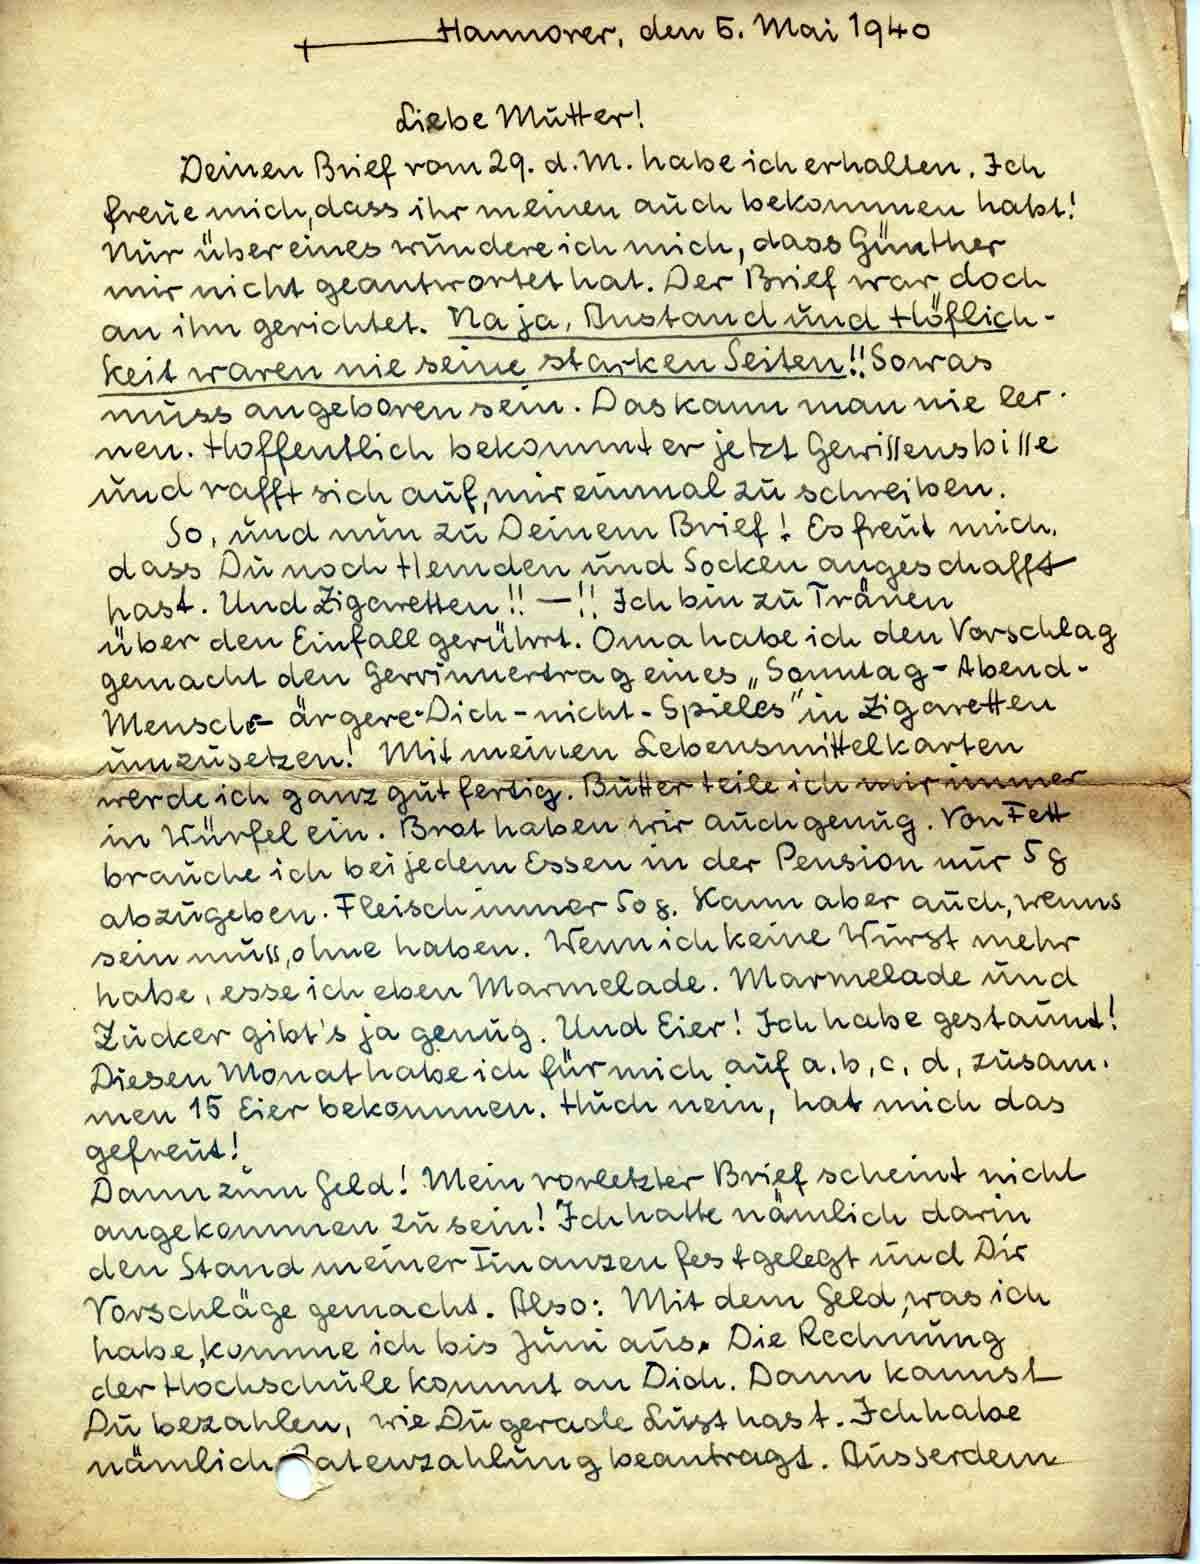 Hannover, den 5. Mai 1940
Liebe Mutter!
Deinen Brief vom 29. d. M. habe ich erhalten. Ich
freue mich, dass ihr meinen auch bekommen habt!
Nur über eines wundere ich mich, dass Günther
mir nicht geantwortet hat. Der Brief war doch
an ihn gerichtet. Na ja, Anstand und Höflich-
keit waren nie seine starken Seiten!! Sowas
muss angeboren sein. Das kann man nie ler-
nen. Hoffentlich bekommt er jetzt Gewissensbisse
und rafft sich auf, mir einmal zu schreiben.
So, und nun zu Deinem Brief! Es freut mich,
dass Du noch Hemden und Socken angeschafft
hast. Und Zigaretten!! —!! Ich bin zu Tränen
über den Einfall gerührt. Oma habe ich den Vorschlag
gemacht den Gewinnertrag eines „Sonntag-Abend-
Mensch-ärgere-Dich-nicht-Spieles" in Zigaretten
umzusetzen! Mit meinen Lebensmittelkarten
werde ich ganz gut fertig. Butter teile ich mir immer
in Würfel ein. Brot haben wir auch genug. Von Fett
brauche ich bei jedem Essen in der Pension nur 5 g
abzugeben. Fleisch immer 50 g. Kann aber auch, wenns
sein muss, ohne haben. Wenn ich keine Wurst mehr
habe, esse ich eben Marmelade. Marmelade und
Zucker gibt's ja genug. Und Eier! Ich habe gestaunt!
Diesen Monat habe ich für mich auf a, b, c, d, zusam-
men 15 Eier bekommen. Huch nein, hat mich das
gefreut!
Dann zum Geld! Mein vorletzter Brief scheint nicht
angekommen zu sein! Ich hatte nämlich darin
den Stand meiner Finanzen festgelegt und Dir
Vorschläge gemacht. Also: Mit dem Geld, was ich
habe, komme ich bis Juni aus. Die Rechnung
der Hochschule kommt an Dich. Dann kannst
Du bezahlen, wie Du gerade Lust hast. Ich habe
nämlich Ratenzahlung beantragt. Ausserdem